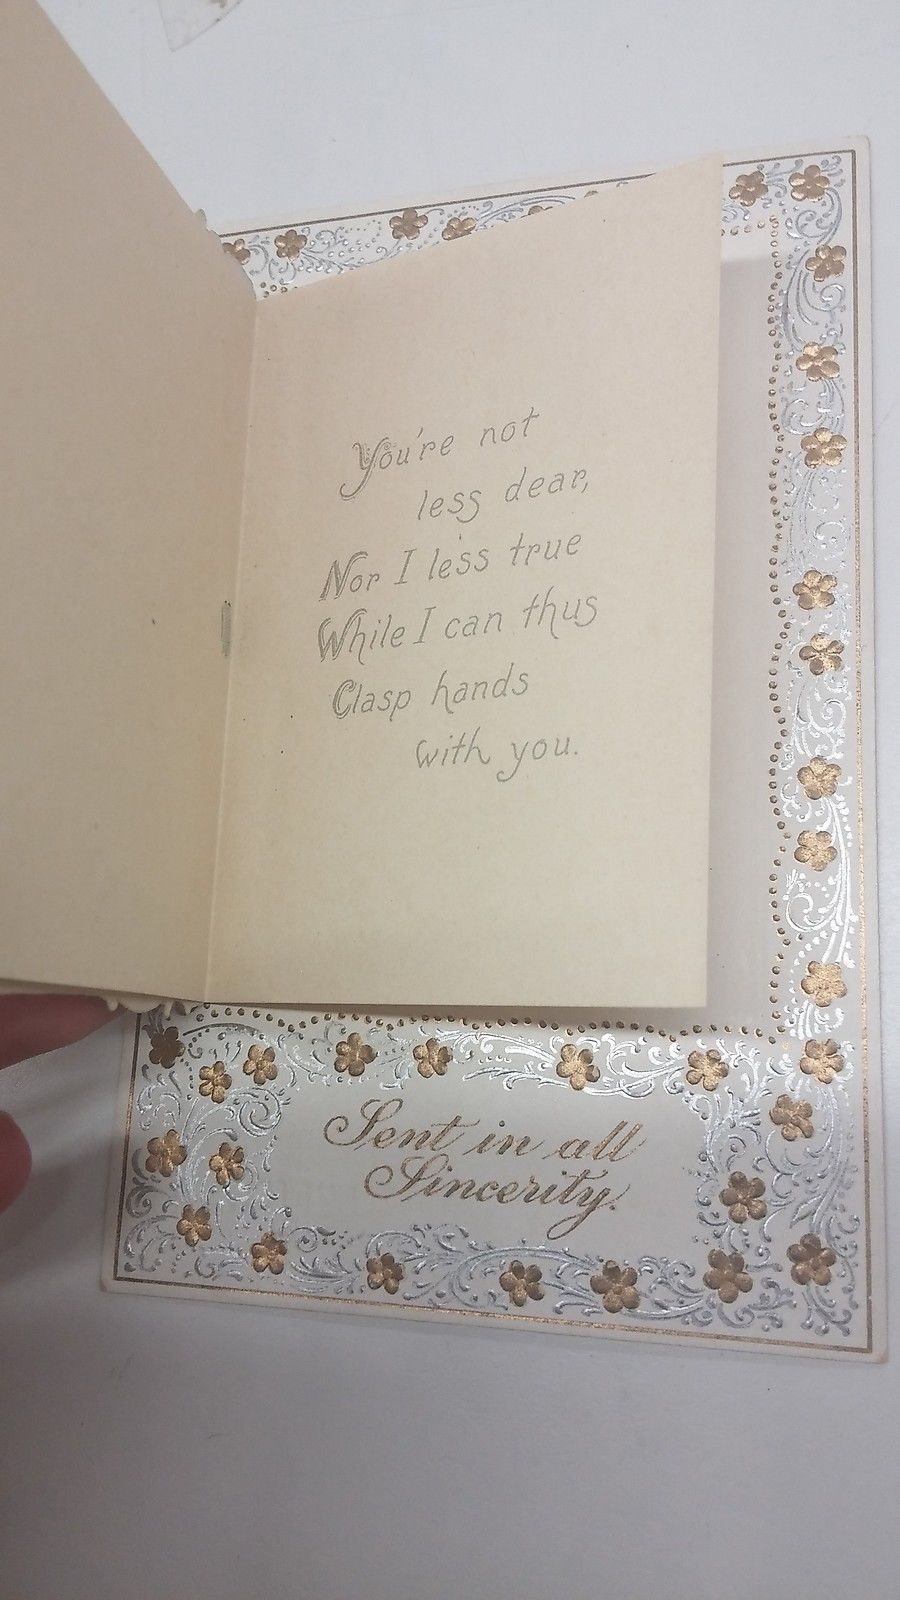 You're not
less dear,
Nor I less true
While I can thus
Clasp hands
with you.
Sent in all
Sincerity.